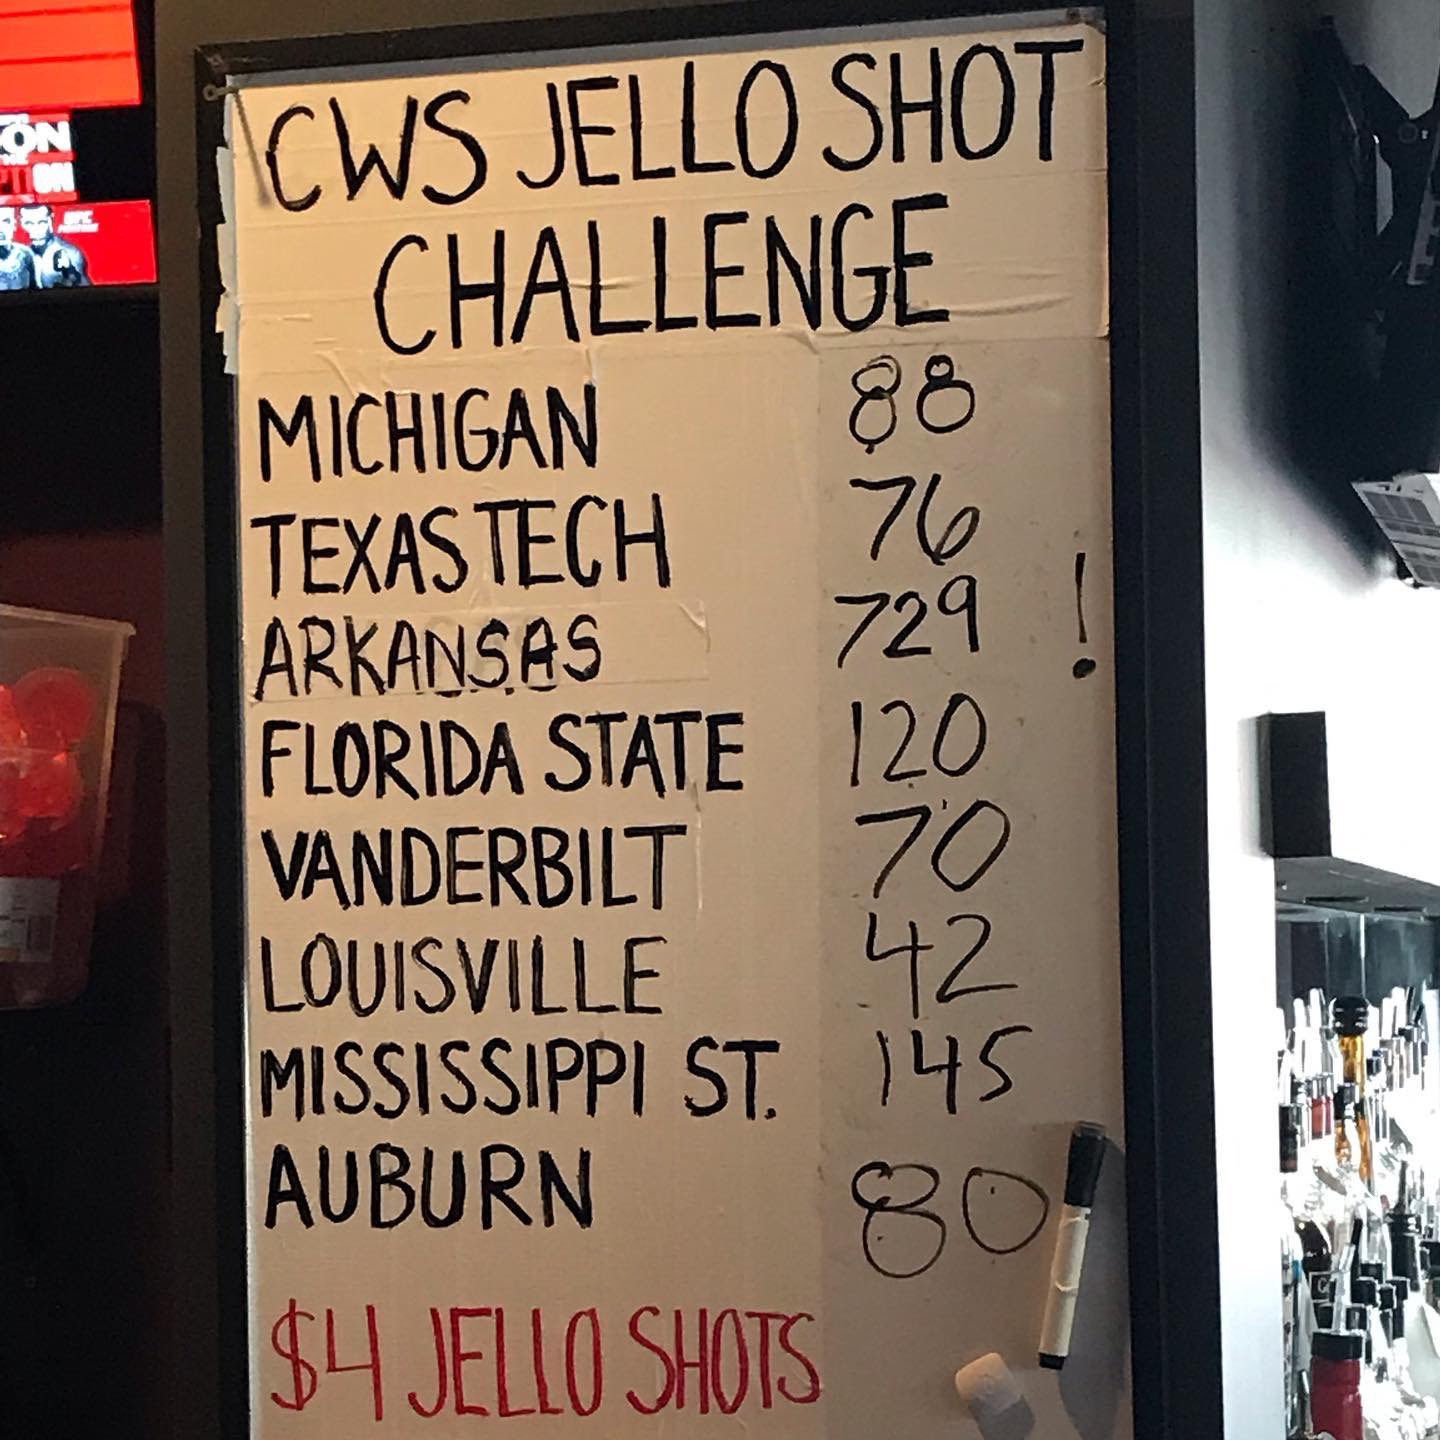 CWS JELLO SHOT
CHALLENGE
MICHIGAN 88
TEXAS TECH 76
ARKANSAS 729 !
FLORIDA STATE 120
VANDERBILT 70
LOUISVILLE 42
MISSISSIPPI ST. 145
AUBURN 80
$4 JELLO SHOTS